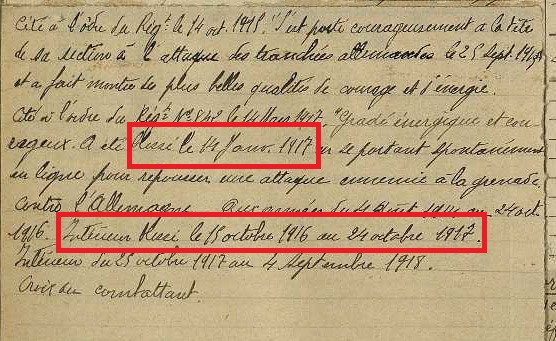 Cité à l'ordre du Régt le 14 oct. 1915. "S'est porté courageusement à la tête
de sa section à l'attaque des tranchées allemandes le 25 Sept. 1915
et a fait montre des plus belles qualités de courage et d'énergie.
Cité à l'ordre du Régt No 848 le 14 Mars 1917 "Gradé énergique et cou-
rageux. A été blessé le 14 Janv. 1917 en se portant spontanément
en ligne pour repousser une attaque ennemie à la grenade.
contre l'Allemagne Aux armées du 4 Août 1914 au 24 oct.
1916. Intérieur blessé le 15 octobre 1916 au 24 octobre 1917.
Intérieur du 25 octobre 1917 au 4 Septembre 1918.
Croix du combattant